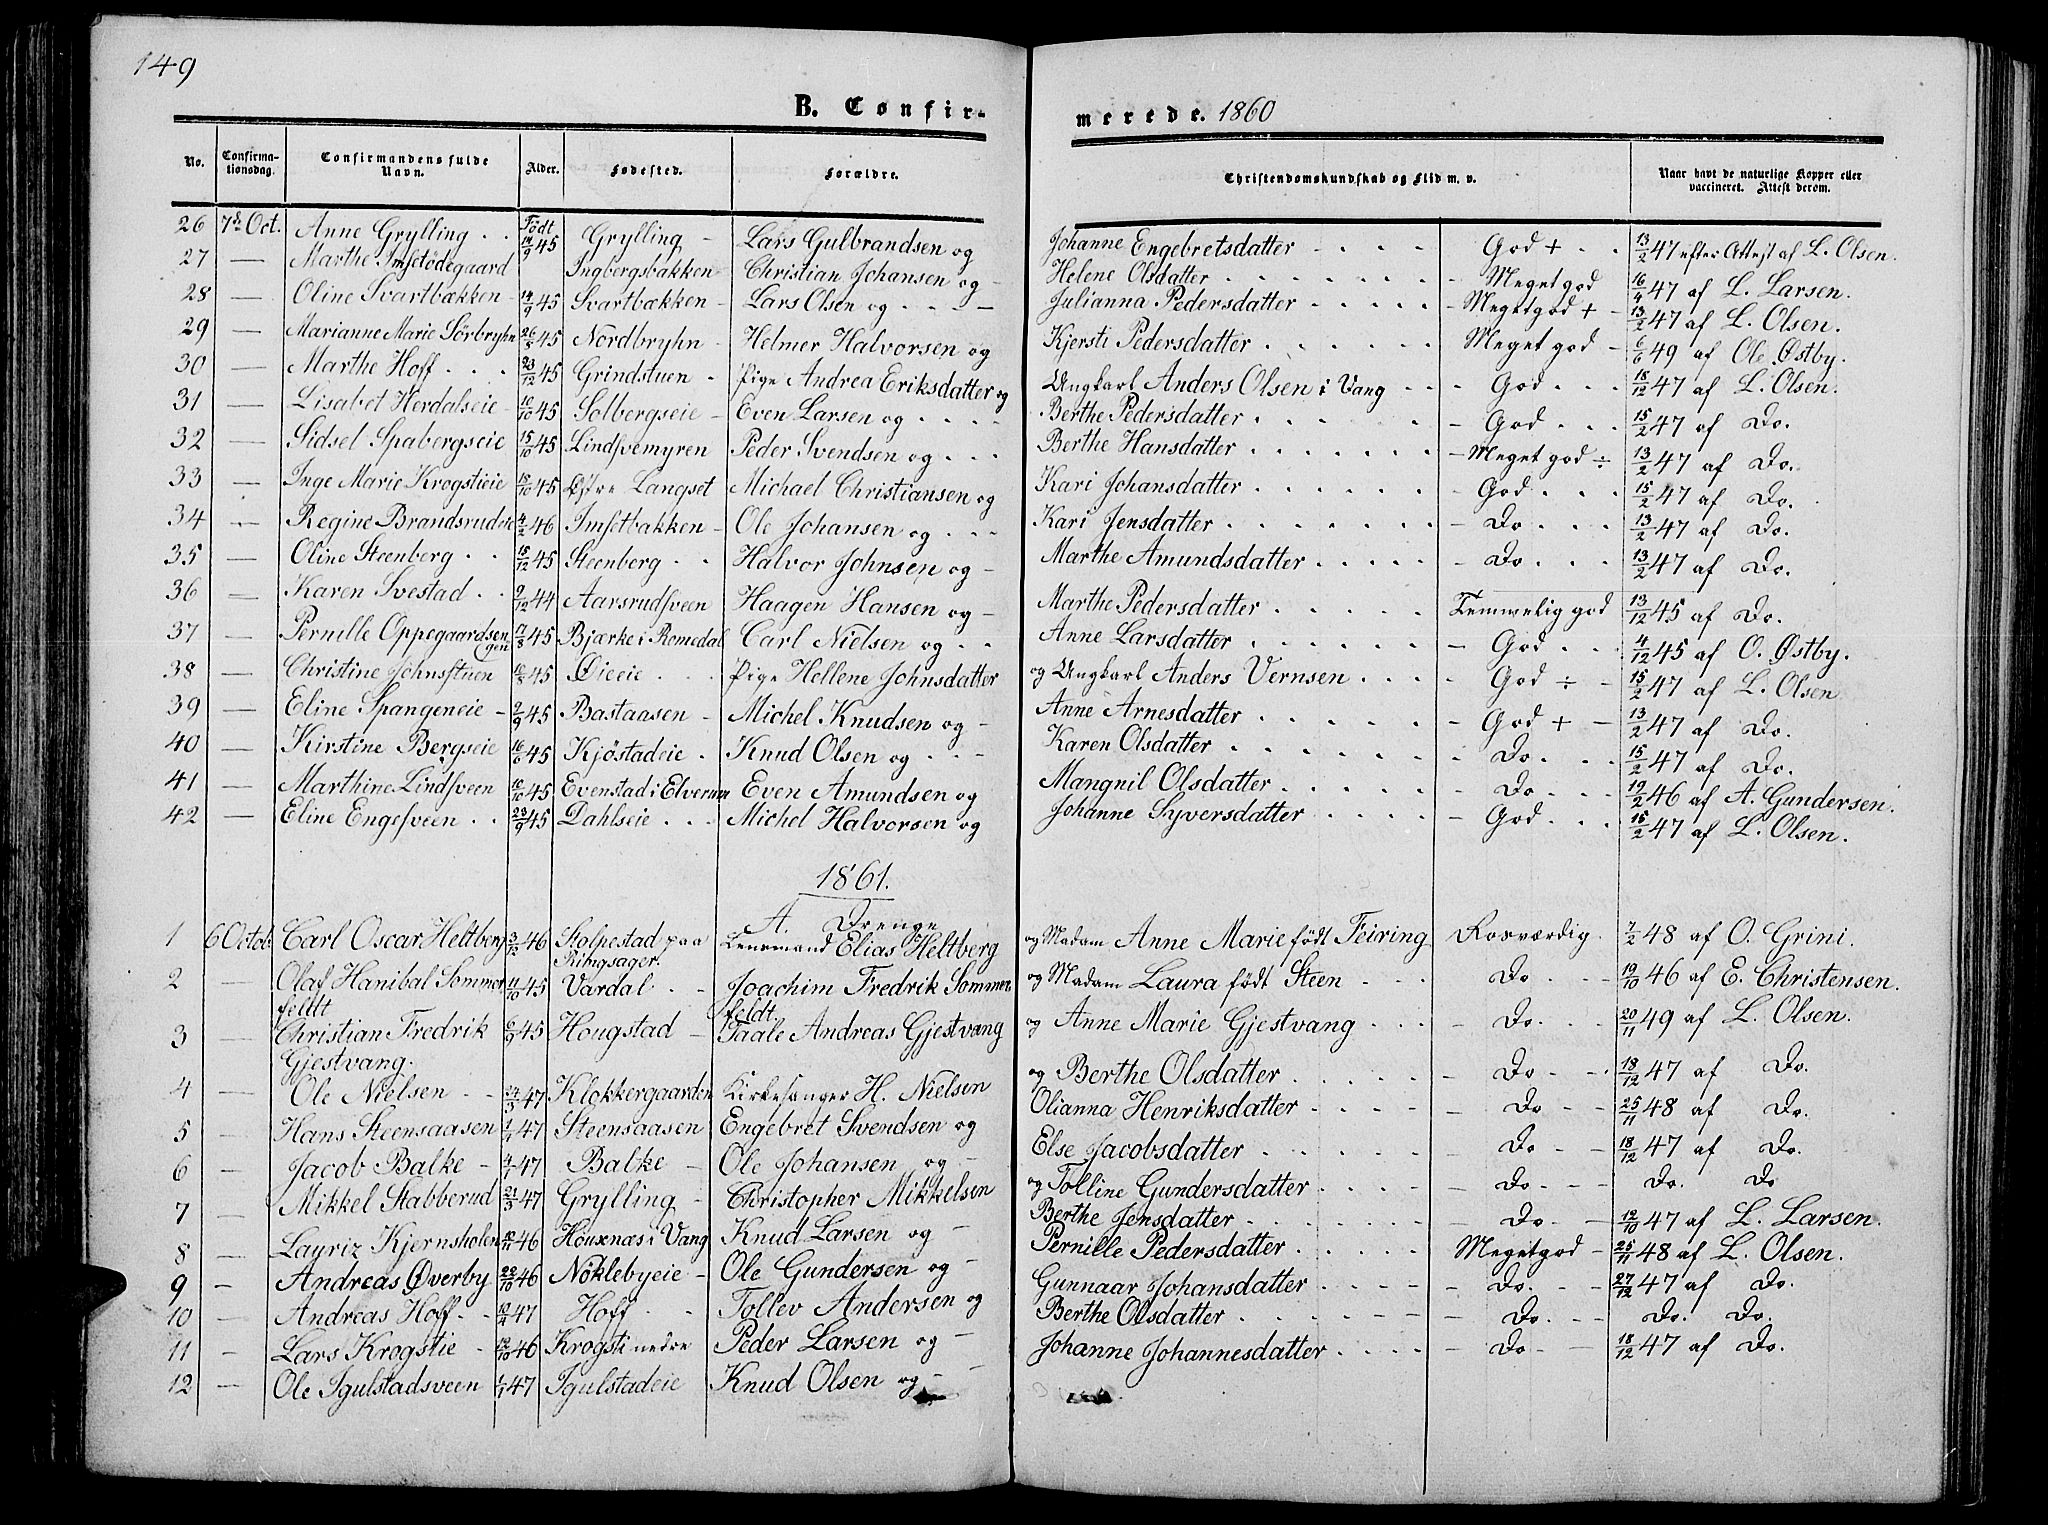 149
B. Confir-
merede. 1860
No. Confirma-tionsdag. Confirmandens fulde Navn. Alder. Fødested. Forældre. Christendomskundskab og Flid m. v. Naar havt de naturlige Kopper eller vaccineret. Attest derom.
26 7de Oct. Anne Grylling . . Født 14/9 45 Grylling - Lars Gulbrandsen og Johanne Engebretsdatter - . . . God + . . 13/2 47 efter Attest af L. Olsen.
27 — Marthe Imsetødegaard Ingbergsbakken Christian Johansen og - Helene Olsdatter . . . . - Meget god 16/4 47 af L. Larsen.
28 — Oline Svartbækken - 14/9 45 Svartbækken - Lars Olsen og . . . Julianna Pedersdatter . . . . - Meget god + - 13/2 47 af L. Olsen.
29 — Marianne Marie Sörbryhn 26/8 45 Nordbryhn - Helmer Halvorsen og Kjersti Pedersdatter . . . . Meget god - 6/6 49 af Ole Østby.
30 — Marthe Hoff . . . 23/12 45 Grindstuen . Pige Andrea Eriksdatter og Ungkarl Anders Olsen i Vang - - - God . . . 18/12 47 af L. Olsen.
31 — Lisabet Herdalseie - 10/10 45 Solbergseie - Even Larsen og . . . . Berthe Pedersdatter . . . . - God . . . 15/2 47 af Do.
32 — Sidsel Spabergseie 15/10 45 Lindsvemyren Peder Svendsen og . . . Berthe Hansdatter . . . . - Meget god ÷ 13/2 47 af Do.
33 — Inge Marie Krogstieie 18/10 45 Østre Langset Michael Christiansen og Kari Johansdatter . . . . - God . . . 15/2 47 af Do.
34 — Regine Brandsrudeie 4/2 46 Imsetbakken - Ole Johansen og . . . Kari Jensdatter . . . . - Do . . . 13/2 47 af Do.
35 — Oline Steenberg . . 15/12 45 Steenberg . . Halvor Johnsen og - Marthe Amundsdatter . . . . - Do . . . 13/2 47 af Do.
36 — Karen Svestad . . 9/12 44 Aarsrudsveen Haagen Hansen og - Marthe Pedersdatter . . . . Temmelig god 13/12 45 af Do.
37 — Pernille Oppegaardsengen 17/8 45 Bjærke i Romedal Carl Nielsen og . . Anne Larsdatter . . . . - God . . . 4/12 45 af O. Østby.
38 — Christine Johnsstuen 18/8 45 Øieeie . . . Pige Hellene Johnsdatter og Ungkarl Anders Vernsen . . . - God ÷ - 15/2 47 af L. Olsen
39 — Eline Spangeneie - 2/9 45 Bastaasen - Michel Knudsen og - Anne Arnesdatter . . . . - God + - 13/2 47 af Do.
40 — Kirstine Bergseie 16/6 45 Kjöstadeie . Knud Olsen og . . - Karen Olsdatter . . . . - Do. . . . 15/2 47 af Do.
41 — Marthine Lindsveen 18/10 45 Evenstad i Elverum Even Amundsen og Mangnil Olsdatter . . . . - Do . . . 19/2 46 af A. Gundersen.
42 — Eline Engesveen . . 22/9 45 Dahlseie . . . Michel Halvorsen og Johanne Syversdatter . . . . - God . . . 15/2 47 af L. Olsen.
1861.
A. Drenge
1 6 Octob. Carl Oscar Heltberg 3/12 46 Stolpestad paa Ringsager. Lensmand Elias Heltberg og Madam Anne Marie født Feiring Rosværdig 7/2 48 af O. Grini.
2 — Olaf Hanibal Sommerfeldt 11/10 45 Vardal . - Joachim Fredrik Sommerfeldt. og Madam Laura født Steen . . . Do . - - 19/10 46 af E. Christensen.
3 — Christian Fredrik Gjestvang. 6/9 45 Hougstad - Taale Andreas Gjestvang og Anne Marie Gjestvang . . . - Do. . . 20/11 49 af L. Olsen.
4 — Ole Nielsen - - 27/3 47 Klokkergaarden Kirkesanger H. Nielsen og Berthe Olsdatter . . . . - Do - - 18/12 47 af Do.
5 — Hans Steensaasen 1/1 47 Steensaasen Engebret Svendsen og Olianna Henriksdatter . . . . - Do - - 25/11 48 af Do.
6 - Jacob Balke - 4/1 47 Balke - Ole Johansen og - Else Jacobsdatter . . . . Do - - 18/12 47 af Do.
7 — Mikkel Stabberud 21/3 47 Grylling - Christopher Mikkelsen og Tolline Gundersdatter . . . . - Do. - - Do. Do
8 — Layriz Kjernsholen 12/11 46 Höuxnæs i Vang Knud Larsen og - Berthe Jensdatter . . . . - Do. - - 12/10 47 af L. Larsen.
9 - Andreas Øverby 22/10 46 Nöklebyeie - Ole Gundersen og - Pernille Pedersdatter . . . . Meget god - 25/11 48 af L. Olsen.
10 - Andreas Hoff - - 12/4 47 Hoff . . Tollev Andersen og Gunnaar Johansdatter . . . . - Do. - - 27/12 47 af Do.
11 - Lars Krogstie - 12/10 46 Krogsti nedre Peder Larsen og - Berthe Olsdatter . . . . - Do. - - Do. Do.
12 — Ole Igulstadsveen 1/1 47 Igulstadeie Knud Olsen og - Johanne Johannesdatter . . . - Do - - 18/12 47 af Do.